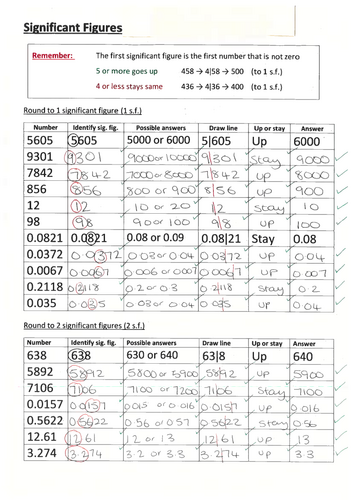 Significant Figures
Remember: The first significant figure is the first number that is not zero
5 or more goes up 458 → 4|58 → 500 (to 1 s.f.)
4 or less stays same 436 → 4|36 → 400 (to 1 s.f.)
Round to 1 significant figure (1 s.f.)
Number Identify sig. fig. Possible answers Draw line Up or stay Answer
5605 5605 5000 or 6000 5|605 Up 6000
9301 9301 9000 or 10000 9|301 Stay 9000
7842 7842 7000 or 8000 7|842 UP 8000
856 856 800 or 900 8|56 UP 900
12 12 10 or 20 1|2 Stay 10
98 98 90 or 100 9|8 UP 100
0.0821 0.0821 0.08 or 0.09 0.08|21 Stay 0.08
0.0372 0.0372 0.03 or 0.04 0.03|72 UP 0.04
0.0067 0.0067 0.006 or 0.007 0.006|7 UP 0.007
0.2118 0.2118 0.2 or 0.3 0.2|118 Stay 0.2
0.035 0.035 0.03 or 0.04 0.03|5 UP 0.04
Round to 2 significant figures (2 s.f.)
Number Identify sig. fig. Possible answers Draw line Up or stay Answer
638 638 630 or 640 63|8 Up 640
5892 5892 5800 or 5900 58|92 UP 5900
7106 7106 7100 or 7200 71|06 Stay 7100
0.0157 0.0157 0.015 or 0.016 0.015|7 UP 0.016
0.5622 0.5622 0.56 or 0.57 0.56|22 Stay 0.56
12.61 12.61 12 or 13 12|.61 UP 13
3.274 3.274 3.2 or 3.3 3.2|74 UP 3.3